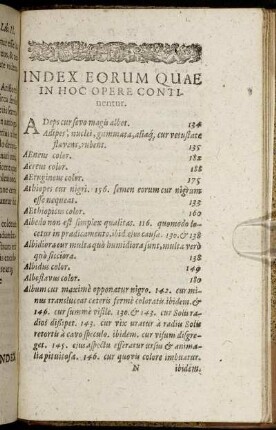 INDEX EORUM QUAE
IN HOC OPERE CONTI-
nentur.
ADeps cur sevo magis albet. 134
Adipes, nuclei, gummata, aliaq́; cur vetustate
flavent, rubent. 135
AEneus color. 182
Aereus color. 188
AErugineus color. 175
AEthiopes cur nigri. 156. semen eorum cur nigrum
esse nequeat. 135
AEthiopicus color. 160
Albedo non est simplex qualitas. 116. quomodo lo-
cetur in praedicamento, ibid. ejus causa. 130. & 138
Albidiora cur multa quò humidiora sunt, multa verò
quò sicciora. 138
Albidus color. 149
Alboflavus color. 180
Album cur maximè opponatur nigro. 142. cur mi-
nus transluceat ceteris fermè coloratis. ibidem. &
146. cur summè visile. 130. & 143. cur Solis ra-
dios dissipet. 143. cur vix uratur à radiis Solis
retortis à cavo speculo. ibidem. cur visum disgre-
get. 145. ejus aspectu efferantur ursus & anima-
lia pituitosa. 146. cur quovis colore imbuatur.
N ibidem.
INDEX